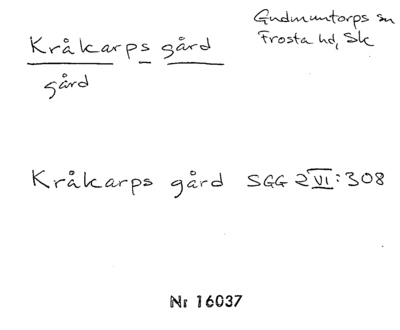 Kråkarps gård
gård
Gudmuntorps sn
Frosta hd, Sk
Kråkarps gård SGG 2 VI: 308
Nr 16037